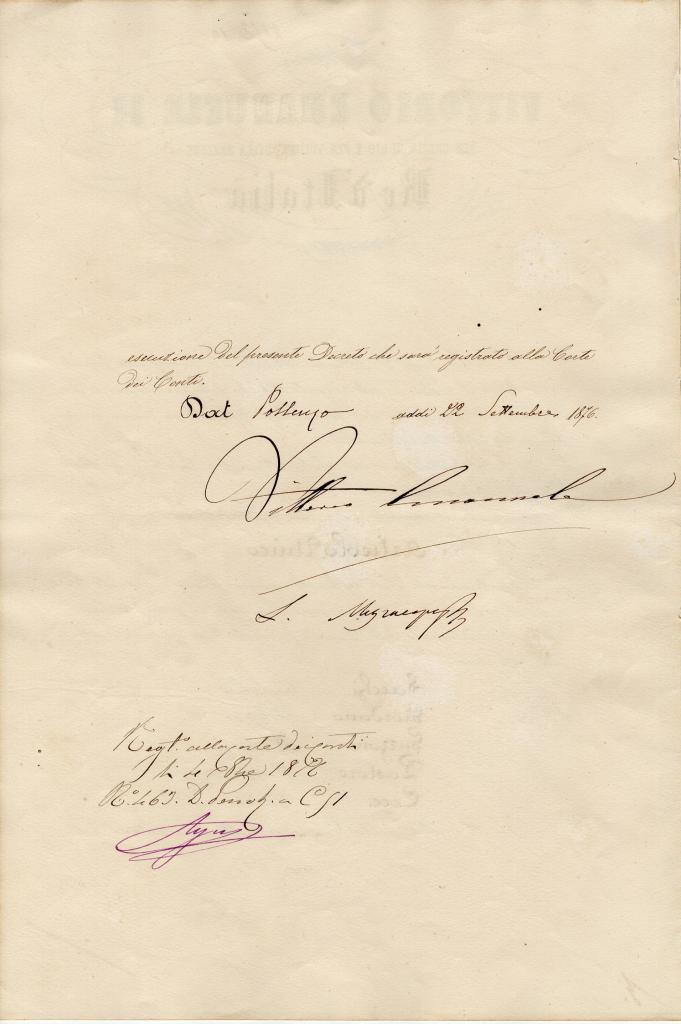 esecuzione del presente Decreto che sarà registrato alla Corte
dei Conti.
Dat Pollenzo addì 22 Settembre 1876.
Vittorio Emanuele
Regto. alla Corte dei Conti
li 4 8bre 1876
No. 463. D. Person. a C 51